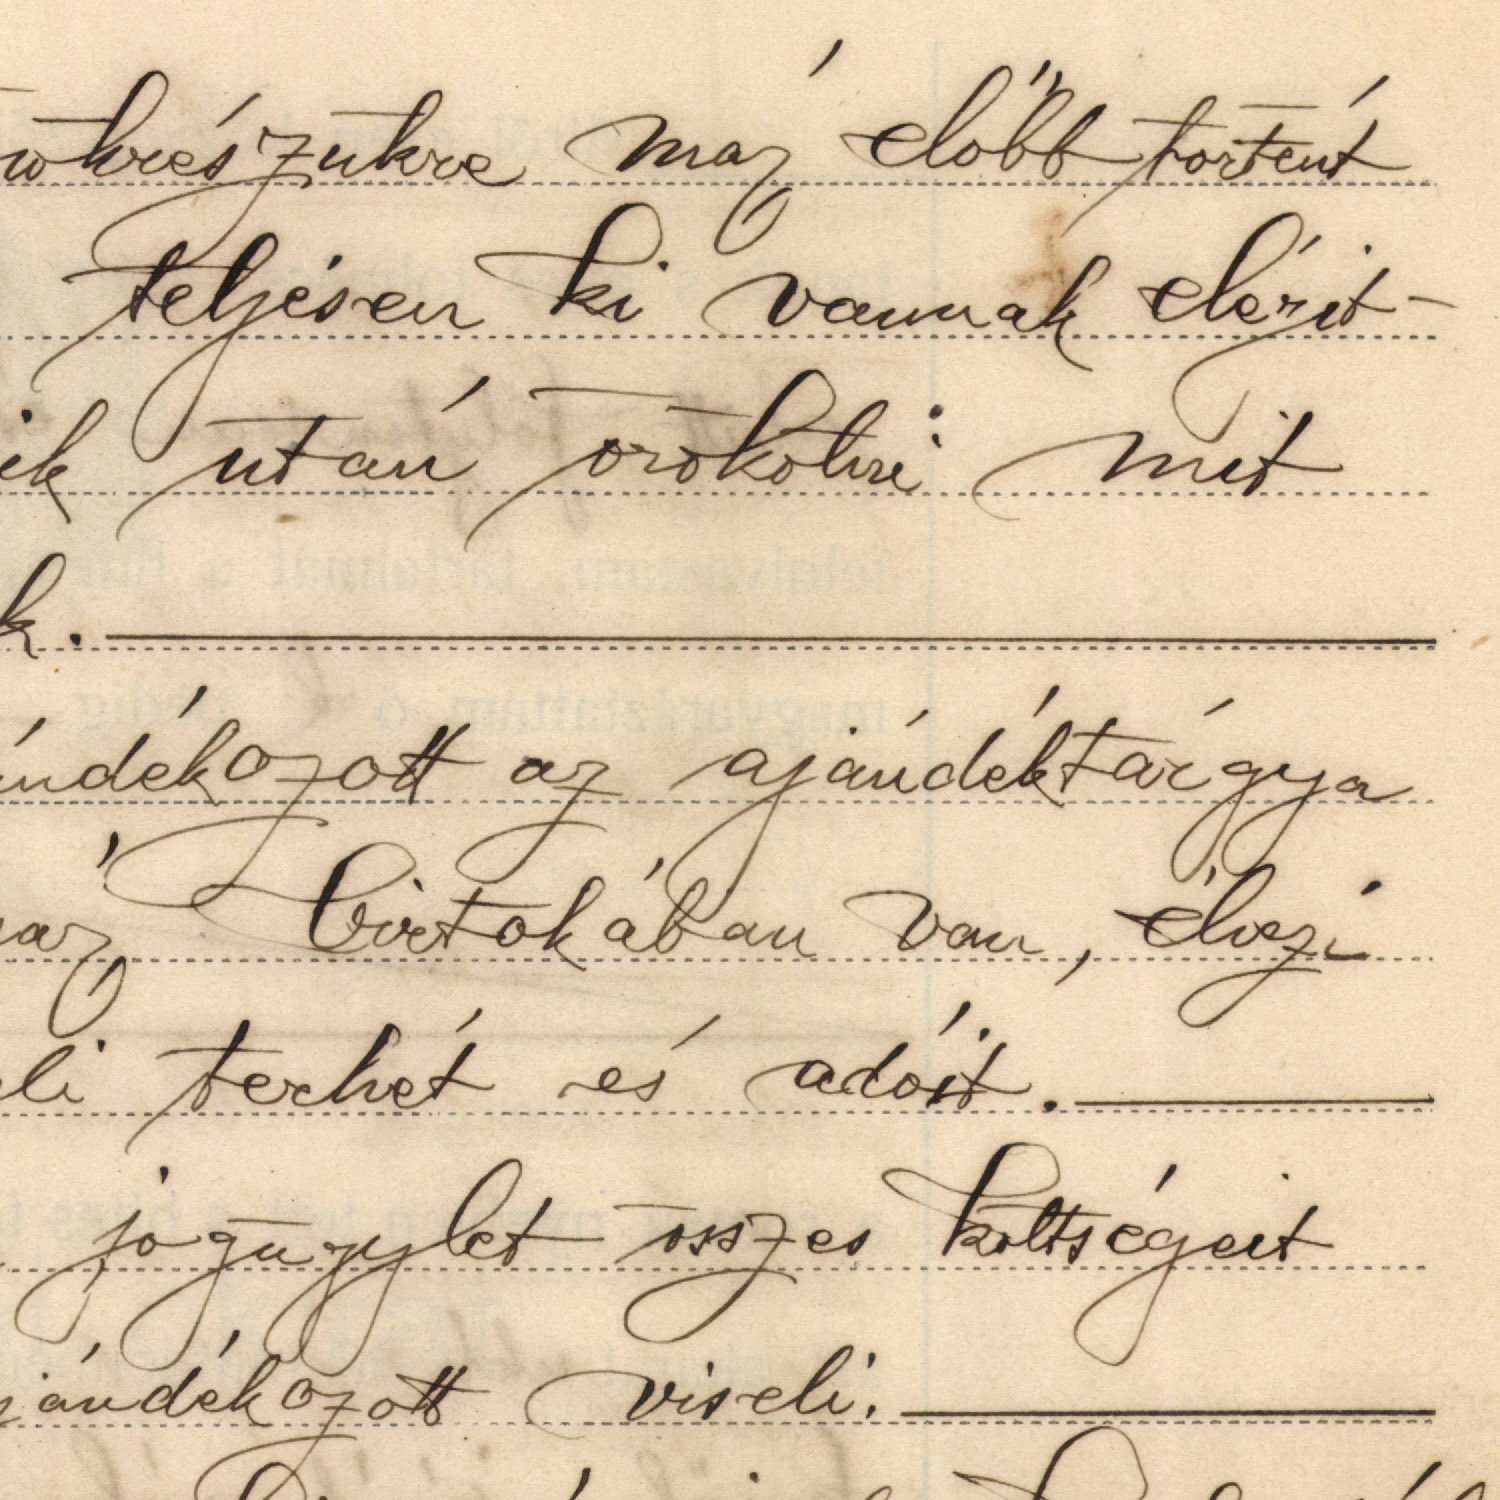 részükre már előbb történt
teljesen ki vannak elégít-
ik után örökölni mit
k.
ándékozott az ajándék tárgya
már birtokában van, élvezi
eli terhét és adóit.
jogügylet összes költségeit
jándékozott viseli.